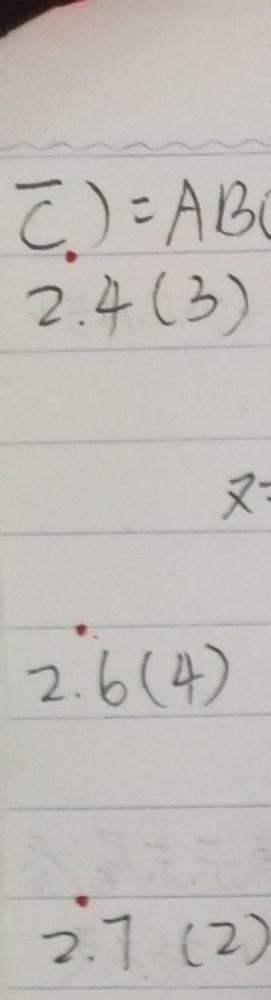 C̅) = AB(
2.4 (3)
2.6 (4)
2.7 (2)